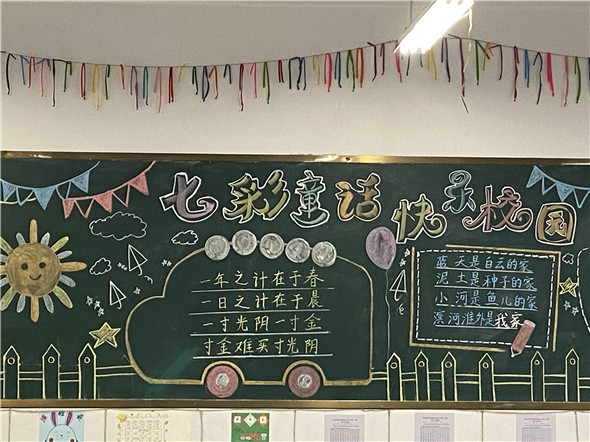 七彩童话 快乐校园
一年之计在于春
一日之计在于晨
一寸光阴一寸金
寸金难买寸光阴
蓝天是白云的家
泥土是种子的家
小河是鱼儿的家
滨河淮外是我家